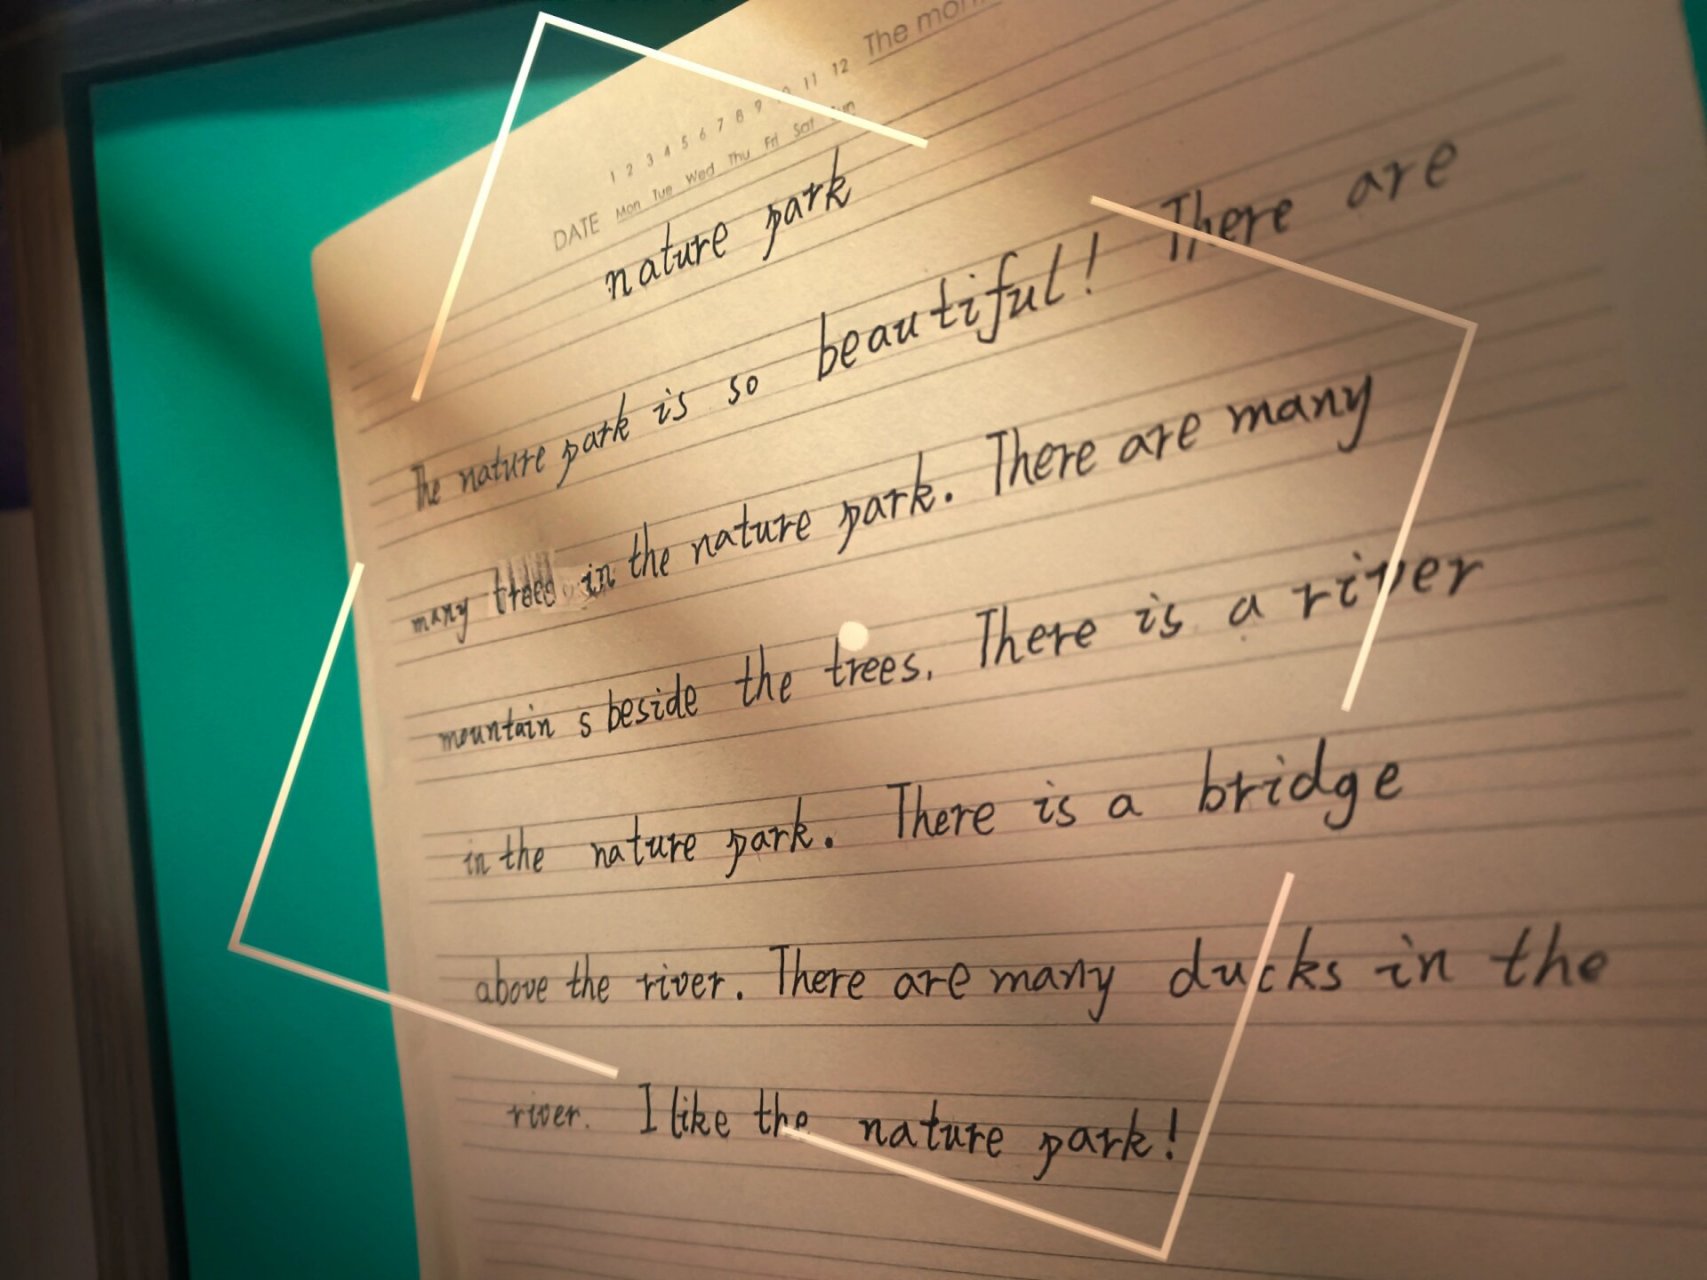 The mor
1 2 3 4 5 6 7 8 9 10 11 12
DATE Mon Tue Wed Thu Fri Sat Sun
nature park
The nature park is so beautiful! There are
many trees in the nature park. There are many
mountain s beside the trees. There is a river
in the nature park. There is a bridge
above the river. There are many ducks in the
river. I like the nature park!